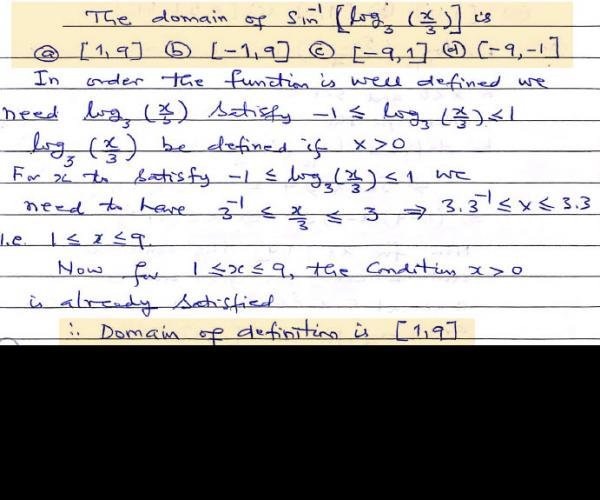 The domain of Sin⁻¹ [log₃ (x/3)] is
ⓐ [1,9] ⓑ [-1,9] ⓒ [-9,1] ⓓ [-9,-1]
In order the function is well defined we
need log₃ (x/3) satisfy -1 ≤ log₃ (x/3) ≤ 1
log₃ (x/3) be defined if x>0
For x to satisfy -1 ≤ log₃ (x/3) ≤ 1 we
need to have 3⁻¹ ≤ x/3 ≤ 3 ⇒ 3.3⁻¹ ≤ x ≤ 3.3
i.e. 1 ≤ x ≤ 9.
Now for 1 ≤ x ≤ 9, the Condition x>0
is already satisfied
∴ Domain of definition is [1,9]